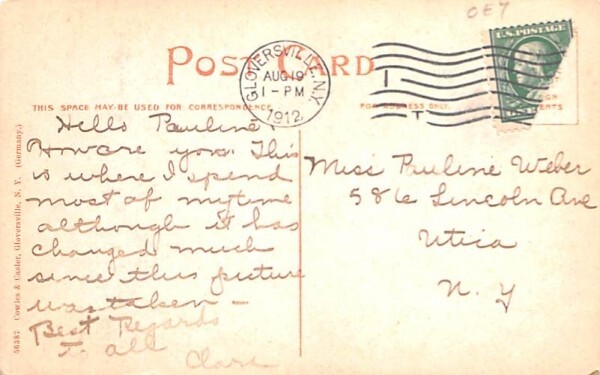 OE7
POST CARD
GLOVERSVILLE, N.Y.
AUG 19
1 - PM
1912
U.S. POSTAGE
THIS SPACE MAY BE USED FOR CORRESPONDENCE
FOR ADDRESS ONLY.
Hello Pauline.
How are you. This
is where I spend
most of my time
although it has
changed much
since this picture
was taken -
Best Regards
to all
Clare
Miss Pauline Weber
586 Lincoln Ave
Utica
N. Y
56387 Cowles & Casler, Gloversville, N. Y. (Germany.)